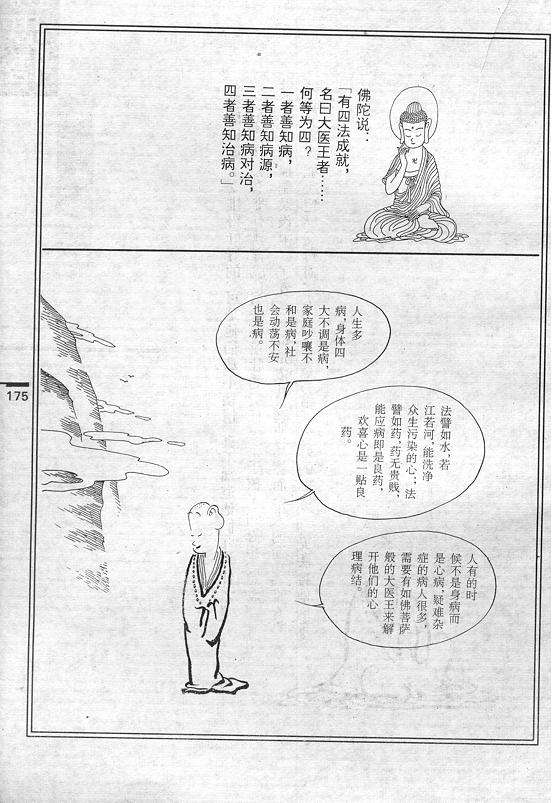 佛陀说：
「有四法成就，
名曰大医王者……
何等为四？
一者善知病，
二者善知病源，
三者善知病对治，
四者善知治病。」
人生多
病，身体四
大不调是病，
家庭吵嚷不
和是病，社
会动荡不安
也是病。
法譬如水，若
江若河，能洗净
众生污染的心；法
譬如药，药无贵贱，
能应病即是良药，
欢喜心是一贴良
药。
人有的时
候不是身病而
是心病，疑难杂
症的病人很多，
需要有如佛菩萨
般的大医王来解
开他们的心
理病结。
175